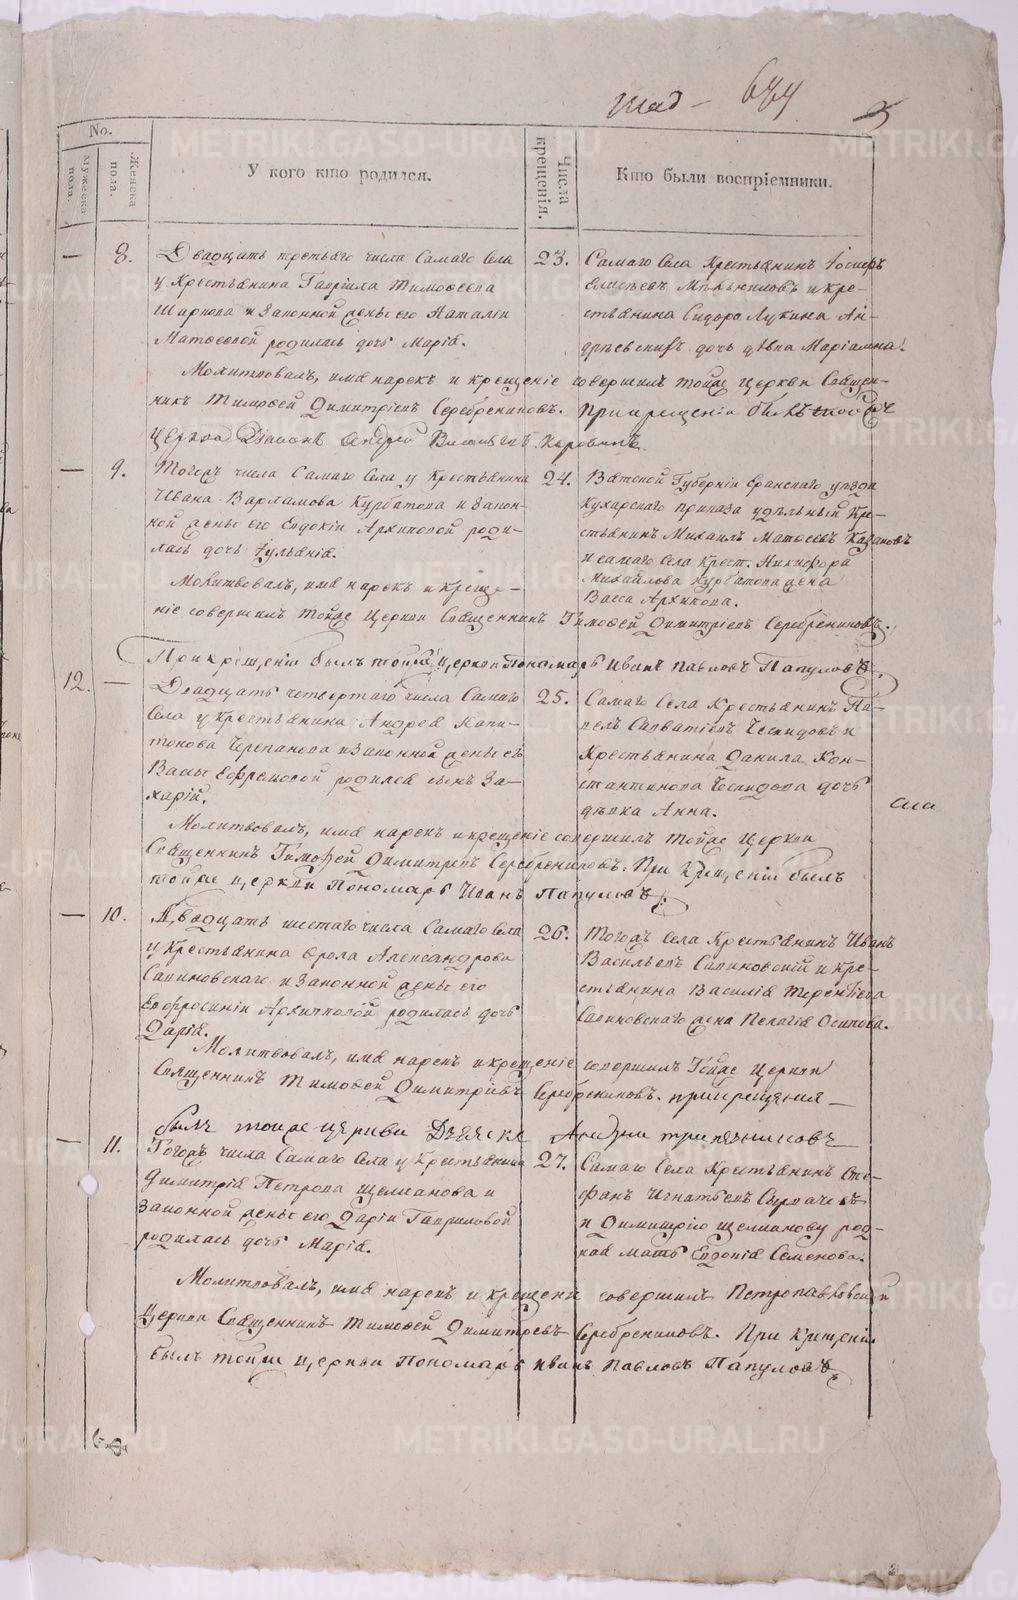 Шад – 674
No.
Мужеска пола.
Женска пола.
У кого кто родился.
Числа крещенія.
Кто были воспріемники.
— 8. Двадцать третьяго числа Самаго Села
у Крестьянина Гавріила Тимофеева
и Законной жены его Наталіи
Матвеевой родилась дочь Марія.
23. Самаго Села Крестьянинъ Іосифъ
Елисеевъ Мѣльниковъ и кре-
стьянина Сидора Лукина Ан-
дрѣевскихъ дочь дѣвка Маріамна.
Молитвовалъ, имя нарекъ и крещеніе совершилъ тойже Церкви Священ-
никъ Тимофей Димитріевъ Серебрениковъ. При крещеніи былъ тойже
Церкви Діаконъ Андрей
— 9. Тогожъ числа Самаго Села у Крестьянина
Ивана Варламова Курбатова и Закон-
ной жены его Евдокіи Архиповой роди-
лась дочь Іульянія.
24. Вятской Губерніи Яранскаго уезда
Кухарскаго приказа удѣльный Кре-
стьянинъ Михаилъ Матвеевъ Казаковъ
и самаго села Крест. Никифора
Михайлова Курбатова жена
Васса Архипова.
Молитвовалъ, имя нарекъ и креще-
ніе совершилъ тойже Церкви Священникъ Тимофей Димитріевъ Серебрениковъ.
При крещеніи былъ тойже Церкви Пономарь Иванъ Павловъ Папуловъ.
12. — Двадцать четвертаго числа Самаго
Села у Крестьянина Андрея Капи-
тонова Черепанова и Законной жены его
Вассы Ефремовой родился сынъ За-
харій.
25. Самаго Села Крестьянинъ Па-
велъ Савватіевъ Ческидовъ и
Крестьянина Данила Кон-
стантинова Ческидова дочь
дѣвка Анна.
Молитвовалъ, имя нарекъ и крещеніе совершилъ тойже Церкви
Священникъ Тимофей Димитріевъ Серебрениковъ. При Крещеніи былъ
тойже церкви Пономарь Иванъ Папуловъ.
— 10. Двадцать шестаго числа Самаго Села
у Крестьянина Фрола Александрова
Салиновскаго и Законной жены его
Евфросиніи Архиповой родилась дочь
Дарія.
26. Тогожъ села Крестьянинъ Иванъ
Васильевъ Салиновскій и кре-
стьянина Василія Терентьева
Салиновскаго жена Пелагія Осипова.
Молитвовалъ, имя нарекъ и крещеніе совершилъ Тойже Церкви
Священникъ Тимофей Димитріевъ Серебрениковъ. при крещеніи —
былъ тойже церкви Дьячекъ Андрей
— 11. Тогожъ числа Самаго Села у Крестьянина
Димитрія Петрова Щелканова и
Законной жены его Даріи Гавриловой
родилась дочь Марія.
27. Самаго Села Крестьянинъ Сте-
фанъ Игнатьевъ Сырпачевъ
и Димитрію Щелканову род-
ная мать Евдокія Семенова.
Молитвовалъ, имя нарекъ и крещеніе совершилъ Петропавловской
Церкви Священникъ Тимофей Димитріевъ Серебрениковъ. При Крещеніи
былъ тойже церкви Пономарь Иванъ Павловъ Папуловъ.
METRIKI.GASO-URAL.RU